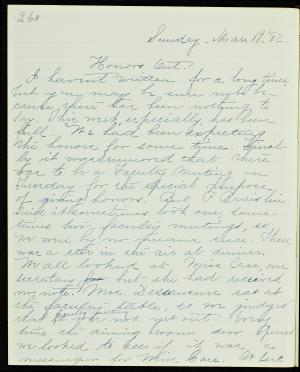 260
Sunday, Mar. 19. '82.
Honors Out?
I havn't written for a long time,
but you may be sure not be-
cause there has been nothing to
say. This week especially, has been
full. We had been expecting
the honors for some time. Final-
ly it was rumored that there
was to be a Faculty Meeting on
Tuesday for the special purpose
of giving honors. But
said it sometimes took one, some-
times two faculty meetings, so
we were by no means sure. There
was a stir in the air at dinner.
We all looked at Miss Case, our
Secretary, but she had
Mrs. sat at
the faculty table, so we judged
that faculty meeting was not yet out. Every
time the dining room door opened
we looked to see if it was a
messenger for Miss Case. At last